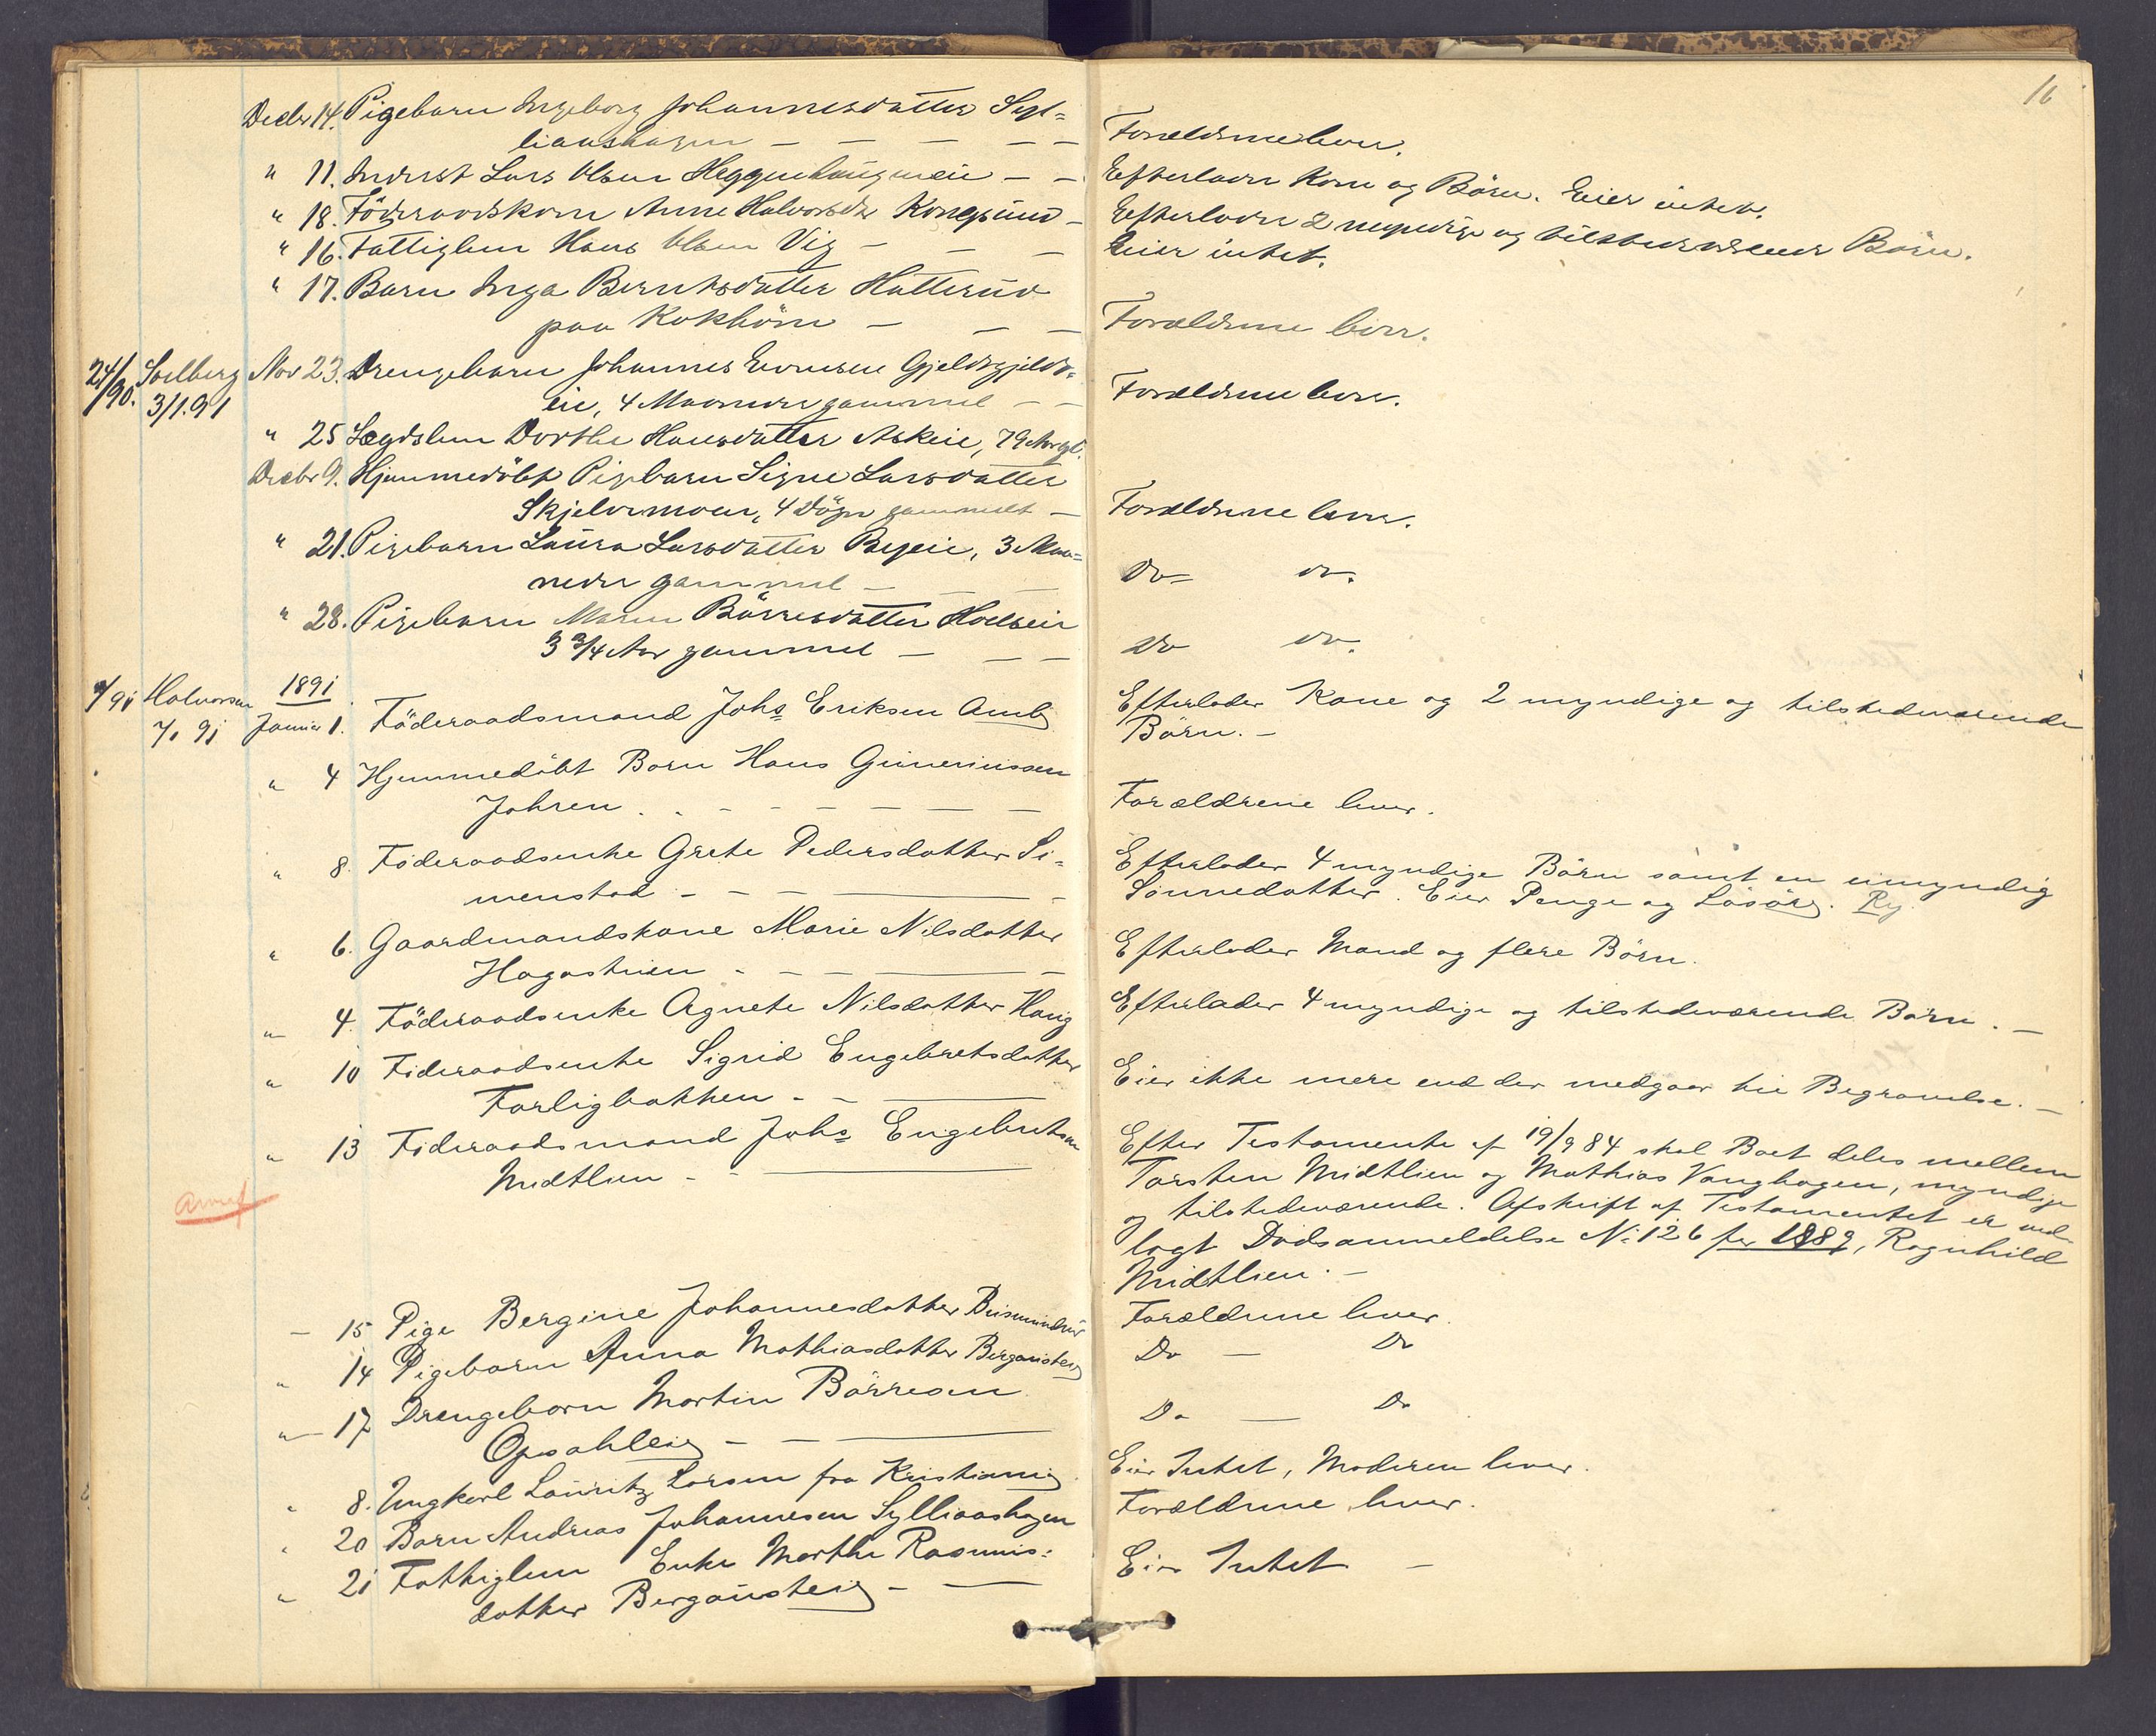 16
Decbr 14. Pigebarn Ingeborg Johannesdatter Syl=
liaashagen — — — — —
Forældrene lever.
" 11. Inderst Lars Olsen Heggenhaugeneie — —
Efterlader Kone og Börn. Eier intet.
" 18. Föderaadskone Anne Halvorsdr Kongsund —
Efterlader 2 myndige og tilstedeværende Börn.
" 16. Fattiglem Hans Olsen Vig — — —
Eier intet.
" 17. Barn Inga Berntsdatter Hatterud
paa Kokhörn — — —
Forældrene lever.
24/90. Solberg Nov 23. Drengebarn Johannes Evensen Gjeldsgjeld=
3/1.91 eie, 4 Maaneder gammel — —
Forældrene lever.
" 25 Lægdslem Dorthe Hansdatter Askeie, 79 Aar gl.
Decbr 9. Hjemmedöbt Pigebarn Signe Larsdatter
Skjelvmoen, 4 Dögn gammelt —
Forældrene lever.
" 21. Pigebarn Laura Larsdatter Byeie, 3 Maa=
neder gammel — — —
Do= do.
" 28. Pigebarn Maren Börresdatter Hoelseie
3 3/4 Aar gammel — — —
Do do.
/91 Halvorsen 1891
7/1 91 Januar 1. Föderaadsmand Johs Eriksen Amb
Efterlader Kone og 2 myndige og tilstedeværende
Börn. —
" 4 Hjemmedöbt Barn Hans Guneriussen
Johren . . — — — — —
Forældrene lever.
" 8. Föderaadsenke Grete Pedersdatter Si=
menstad — — — —
Efterlader 4 myndige Börn samt en umyndig
Sönnedatter. Eier Penge og Lösöre. Rg
" 6. Gaardmandskone Marie Nilsdatter
Hagastuen — — — —
Efterlader Mand og flere Börn.
" 4. Föderaadsenke Agnete Nilsdatter Haug
Efterlader 4 myndige og tilstedeværende Börn. —
" 10 Föderaadsenke Sigrid Engebretsdatter
Farligbakken — — —
Eier ikke mere end der medgaar til Begravelse. —
" 13 Föderaadsmand Johs Engebretsen
Midtlien — — —
Efter Testamente af 19/9 84 skal Boet deles mellem
Torsten Midtlien og Mathias Vanghagen, myndige
og tilstedeværende. Afskrift af Testamentet er ved-
lagt Dödsanmeldelse No 126 for 1889, Ragnhild
Midtlien. —
— 15 Pige Bergine Johannesdatter
Forældrene lever.
" 14 Pigebarn Anna Mathiasdatter Bergausteig
Do — Do
" 17 Drengebarn Martin Börresen
Opsahleie — — —
Do — Do
" 8. Ungkarl Lauritz Larsen fra Kristiania
Eier Intet, Moderen lever.
" 20 Barn Andreas Johannesen Sylliaashagen
Forældrene lever.
" 21 Fattiglem Enke Marthe Rasmus=
datter Bergausteig — —
Eier Intet —